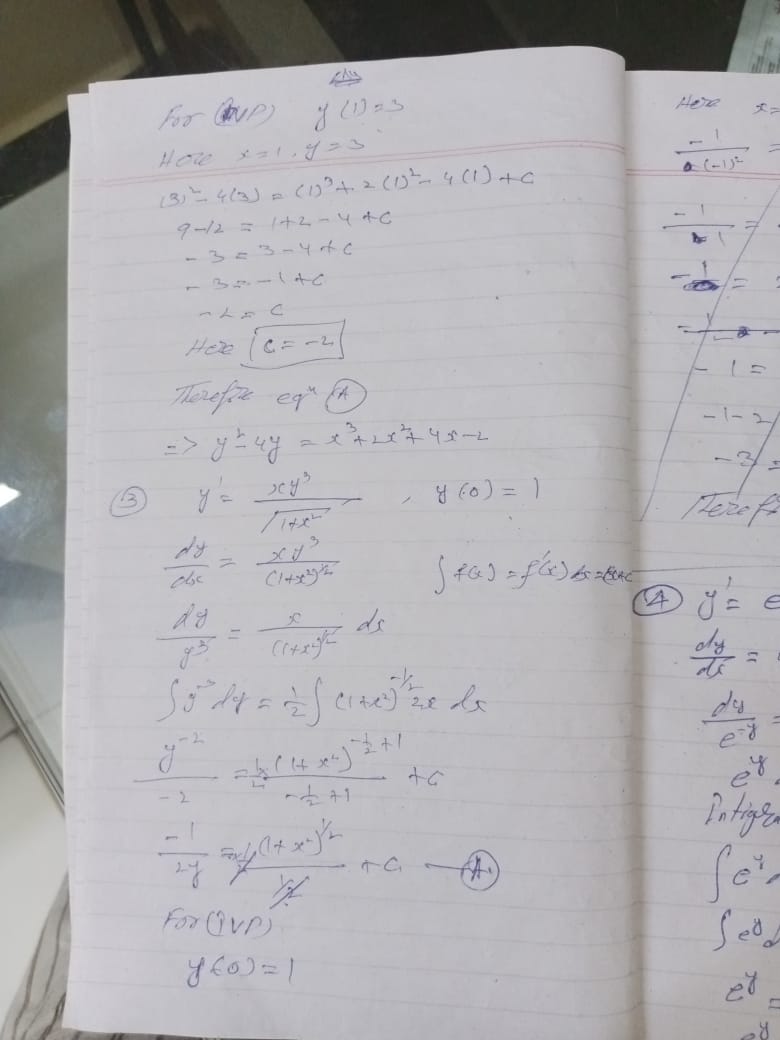 For (IVP) y(1)=3
Here x=1, y=3
(3)²-4(3) = (1)³+2(1)²-4(1)+C
9-12 = 1+2-4+C
-3 = 3-4+C
-3=-1+C
-2 = C
Here C=-2
Therefore eqⁿ (A)
=> y²-4y = x³+2x²+4x-2
(3) y' = xy³/√(1+x²) , y(0) = 1
dy/dx = xy³/(1+x²)^1/2
∫f(x) = f'(x) dx =
dy/y³ = x/(1+x²)^1/2 dx
∫y⁻³ dy = 1/2 ∫(1+x²)^-1/2 2x dx
y⁻²/-2 = 1/2 (1+x²)^-1/2+1/-1/2+1 +C
-1/2y = 1/2 (1+x²)^1/2/1/2 + C — (A)
For (IVP)
y(0)=1
Here x=
-1/(-1)² =
-1/1 =
-1 =
-1 =
-1-2
-3 =
(4) y' = e
dy/dx =
dy/e^-y =
e^y
∫e^y
∫e^y d
e^y =
e^y